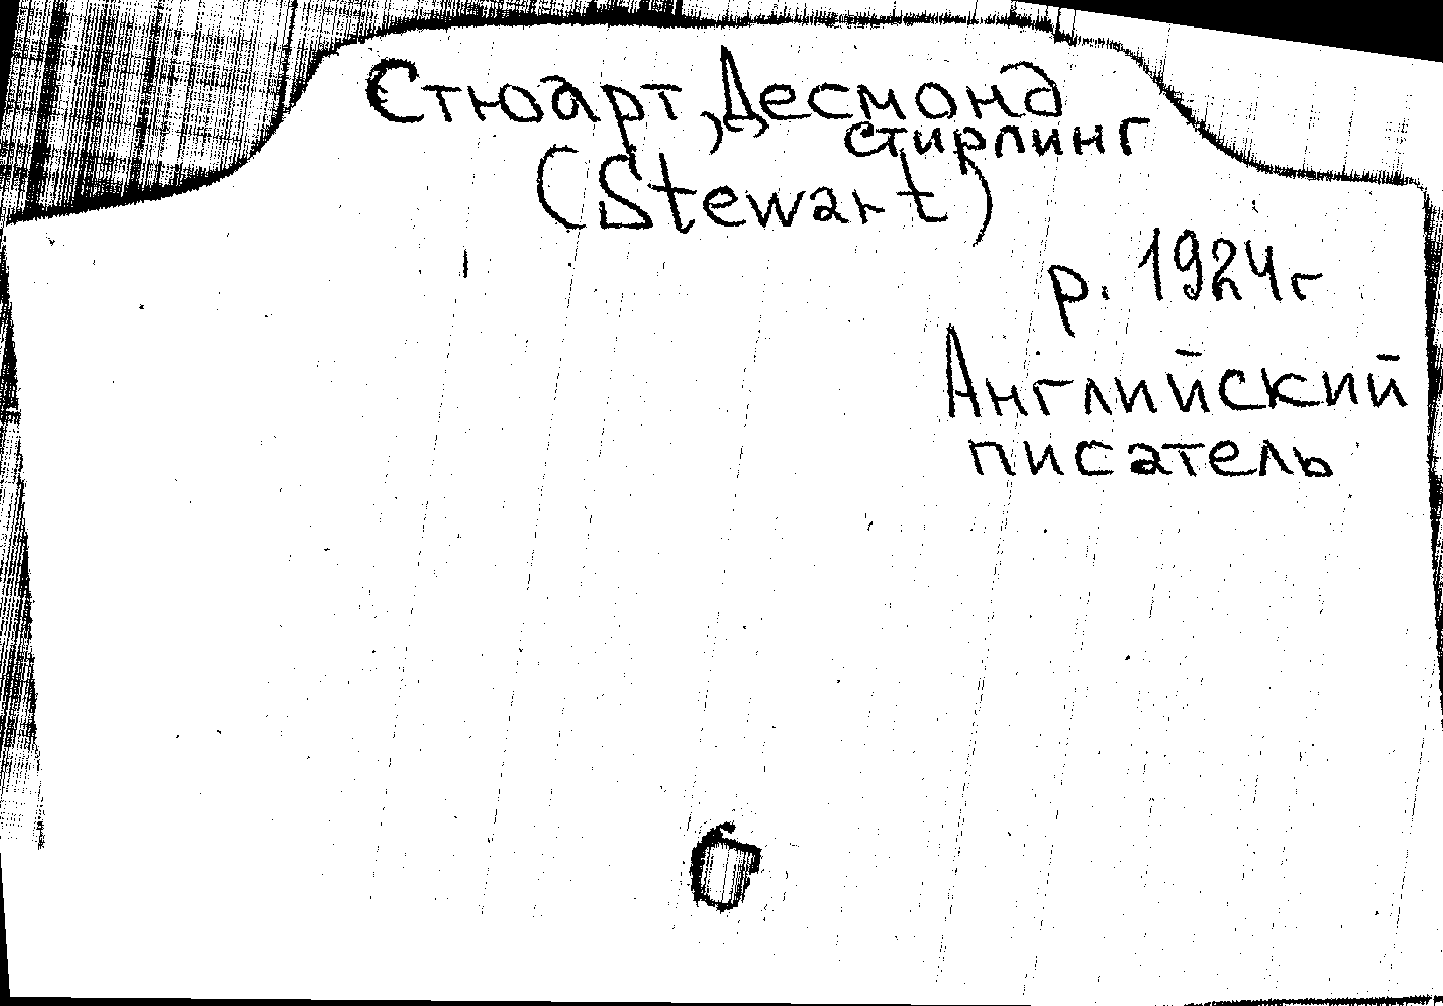 Стюарт, Десмонд
стирлинг
(Stewart)
р. 1924г
Английский
писатель